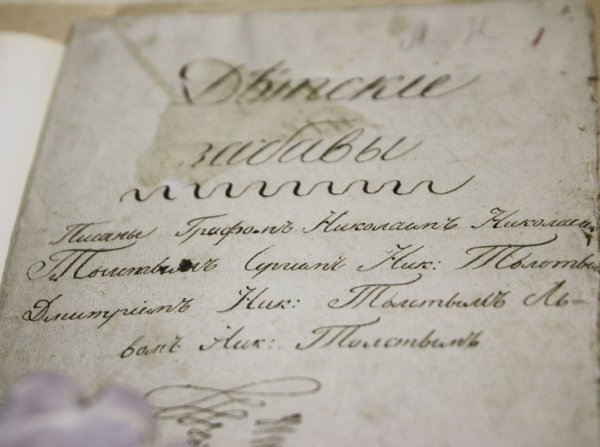 Дѣтскіе
забавы
Писаны Графомъ Николаимъ Николаеви
Толстымъ Сергиимъ Ник: Толсты
Дмитріемъ Ник: Толстымъ Ль-
вомъ Ник: Толстымъ